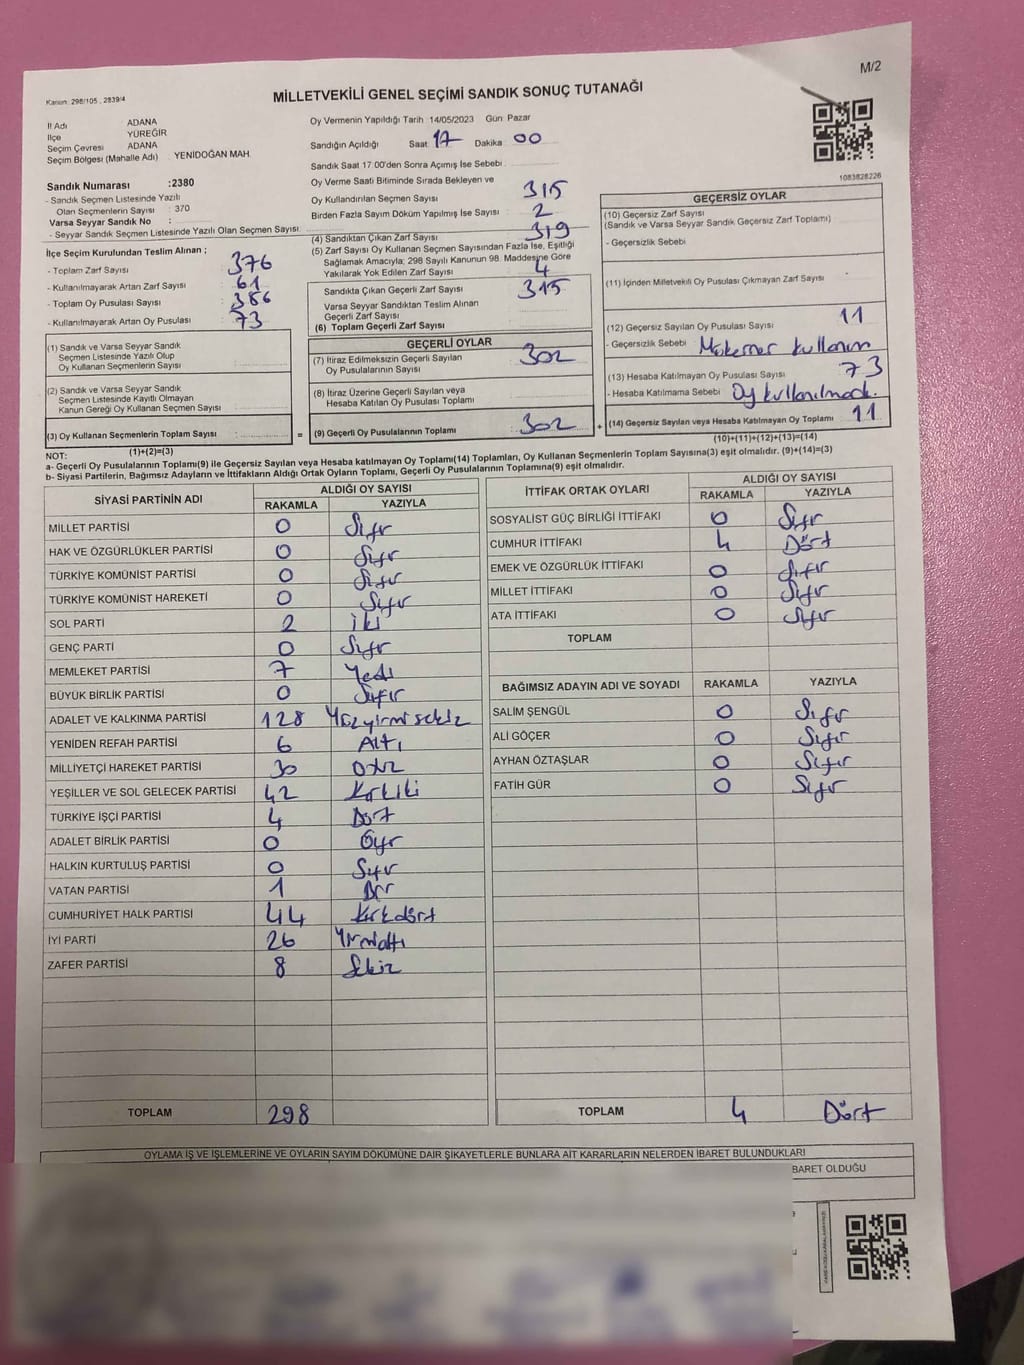 M/2
Kanun: 298/105 , 2839/4
MİLLETVEKİLİ GENEL SEÇİMİ SANDIK SONUÇ TUTANAĞI
İl Adı : ADANA
İlçe : YÜREĞİR
Seçim Çevresi : ADANA
Seçim Bölgesi (Mahalle Adı) : YENİDOĞAN MAH.
Oy Vermenin Yapıldığı Tarih 14/05/2023 Gün Pazar
Sandığın Açıldığı Saat 17 Dakika 00
Sandık Saat 17:00'den Sonra Açımış İse Sebebi :
1083828226
Sandık Numarası :2380
- Sandık Seçmen Listesinde Yazılı
Olan Seçmenlerin Sayısı : 370
Varsa Seyyar Sandık No :
- Seyyar Sandık Seçmen Listesinde Yazılı Olan Seçmen Sayısı
Oy Verme Saati Bitiminde Sırada Bekleyen ve
Oy Kullandırılan Seçmen Sayısı 315
Birden Fazla Sayım Döküm Yapılmış İse Sayısı 2
İlçe Seçim Kurulundan Teslim Alınan ;
- Toplam Zarf Sayısı 376
- Kullanılmayarak Artan Zarf Sayısı 61
- Toplam Oy Pusulası Sayısı 386
- Kullanılmayarak Artan Oy Pusulası 73
(4) Sandıktan Çıkan Zarf Sayısı 319
(5) Zarf Sayısı Oy Kullanan Seçmen Sayısından Fazla İse, Eşitliği
Sağlamak Amacıyla; 298 Sayılı Kanunun 98. Maddesine Göre
Yakılarak Yok Edilen Zarf Sayısı 4
Sandıkta Çıkan Geçerli Zarf Sayısı 315
Varsa Seyyar Sandıktan Teslim Alınan
Geçerli Zarf Sayısı
(6) Toplam Geçerli Zarf Sayısı
(1) Sandık ve Varsa Seyyar Sandık
Seçmen Listesinde Yazılı Olup
Oy Kullanan Seçmenlerin Sayısı
(2) Sandık ve Varsa Seyyar Sandık
Seçmen Listesinde Kayıtlı Olmayan
Kanun Gereği Oy Kullanan Seçmen Sayısı
(3) Oy Kullanan Seçmenlerin Toplam Sayısı
(1)+(2)=(3)
GEÇERLİ OYLAR
(7) İtiraz Edilmeksizin Geçerli Sayılan
Oy Pusulalarının Sayısı 302
(8) İtiraz Üzerine Geçerli Sayılan veya
Hesaba Katılan Oy Pusulası Toplamı
= (9) Geçerli Oy Pusulalarının Toplamı : 302 +
GEÇERSİZ OYLAR
(10) Geçersiz Zarf Sayısı
(Sandık ve Varsa Seyyar Sandık Geçersiz Zarf Toplamı)
- Geçersizlik Sebebi
(11) İçinden Milletvekili Oy Pusulası Çıkmayan Zarf Sayısı
(12) Geçersiz Sayılan Oy Pusulası Sayısı 11
- Geçersizlik Sebebi kullanım
(13) Hesaba Katılmayan Oy Pusulası Sayısı 73
- Hesaba Katılmama Sebebi Oy kullanılmadı.
(14) Geçersiz Sayılan veya Hesaba Katılmayan Oy Toplamı 11
(10)+(11)+(12)+(13)=(14)
NOT:
a- Geçerli Oy Pusulalarının Toplamı(9) ile Geçersiz Sayılan veya Hesaba katılmayan Oy Toplamı(14) Toplamları, Oy Kullanan Seçmenlerin Toplam Sayısına(3) eşit olmalıdır. (9)+(14)=(3)
b- Siyasi Partilerin, Bağımsız Adayların ve İttifakların Aldığı Ortak Oyların Toplamı, Geçerli Oy Pusulalarının Toplamına(9) eşit olmalıdır.
SİYASİ PARTİNİN ADI ALDIĞI OY SAYISI
RAKAMLA YAZIYLA
MİLLET PARTİSİ 0 Sıfır
HAK VE ÖZGÜRLÜKLER PARTİSİ 0 Sıfır
TÜRKİYE KOMÜNİST PARTİSİ 0 Sıfır
TÜRKİYE KOMÜNİST HAREKETİ 0 Sıfır
SOL PARTİ 2 İki
GENÇ PARTİ 0 Sıfır
MEMLEKET PARTİSİ 7 Yedi
BÜYÜK BİRLİK PARTİSİ 0 Sıfır
ADALET VE KALKINMA PARTİSİ 128 Yüzyirmisekiz
YENİDEN REFAH PARTİSİ 6 Altı
MİLLİYETÇİ HAREKET PARTİSİ 30 Otuz
YEŞİLLER VE SOL GELECEK PARTİSİ 42 Kırkiki
TÜRKİYE İŞÇİ PARTİSİ 4 Dört
ADALET BİRLİK PARTİSİ 0
HALKIN KURTULUŞ PARTİSİ 0 Sıfır
VATAN PARTİSİ 1 Bir
CUMHURİYET HALK PARTİSİ 44 Kırkdört
İYİ PARTİ 26 Yirmialtı
ZAFER PARTİSİ 8 Sekiz
TOPLAM 298
İTTİFAK ORTAK OYLARI ALDIĞI OY SAYISI
RAKAMLA YAZIYLA
SOSYALİST GÜÇ BİRLİĞİ İTTİFAKI 0 Sıfır
CUMHUR İTTİFAKI 4 Dört
EMEK VE ÖZGÜRLÜK İTTİFAKI 0 Sıfır
MİLLET İTTİFAKI 0 Sıfır
ATA İTTİFAKI 0 Sıfır
TOPLAM
BAĞIMSIZ ADAYIN ADI VE SOYADI RAKAMLA YAZIYLA
SALİM ŞENGÜL 0 Sıfır
ALİ GÖÇER 0 Sıfır
AYHAN ÖZTAŞLAR 0 Sıfır
FATİH GÜR 0 Sıfır
TOPLAM 4 Dört
OYLAMA İŞ VE İŞLEMLERİNE VE OYLARIN SAYIM DÖKÜMÜNE DAİR ŞİKAYETLERLE BUNLARA AİT KARARLARIN NELERDEN İBARET BULUNDUKLARI
BARET OLDUĞU